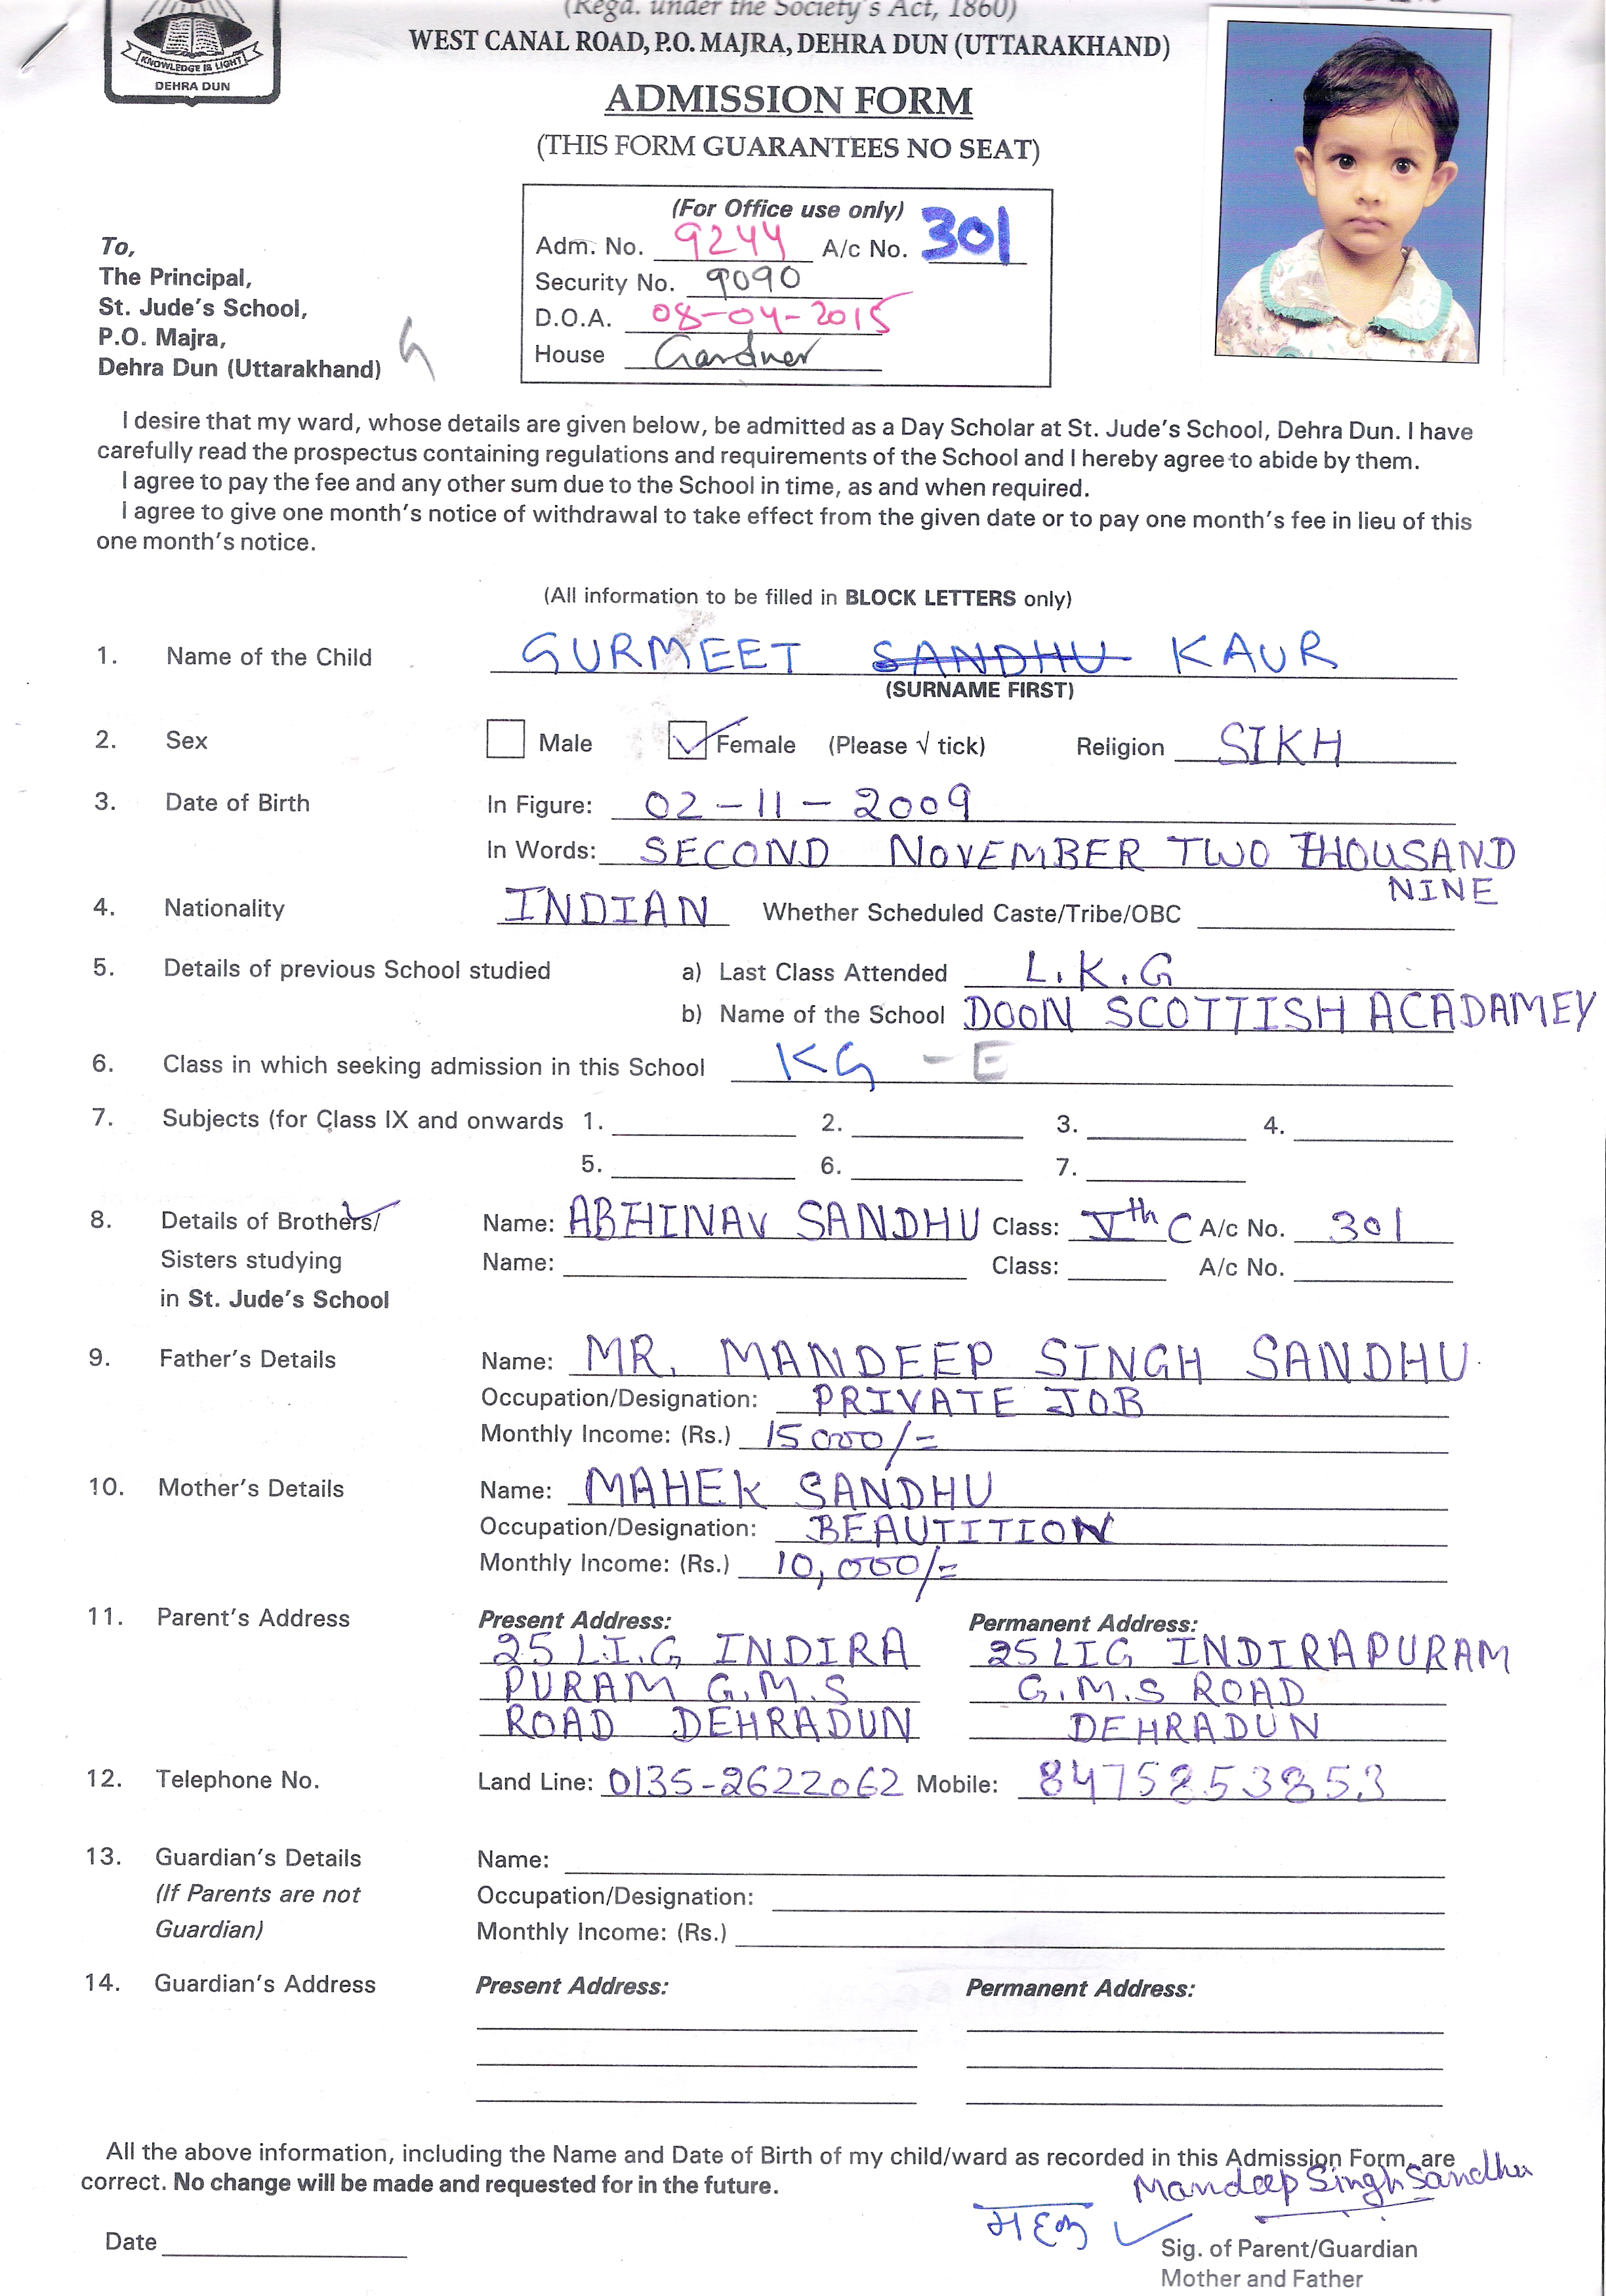 (Regd. under the Society's Act, 1860)
WEST CANAL ROAD, P.O. MAJRA, DEHRA DUN (UTTARAKHAND)
KNOWLEDGE IS LIGHT
DEHRA DUN
ADMISSION FORM
(THIS FORM GUARANTEES NO SEAT)
(For Office use only)
Adm. No. 9244 A/c No. 301
Security No. 9090
D.O.A. 08-04-2015
House Gardner
To,
The Principal,
St. Jude's School,
P.O. Majra,
Dehra Dun (Uttarakhand)
G
I desire that my ward, whose details are given below, be admitted as a Day Scholar at St. Jude's School, Dehra Dun. I have
carefully read the prospectus containing regulations and requirements of the School and I hereby agree to abide by them.
I agree to pay the fee and any other sum due to the School in time, as and when required.
I agree to give one month's notice of withdrawal to take effect from the given date or to pay one month's fee in lieu of this
one month's notice.
(All information to be filled in BLOCK LETTERS only)
1. Name of the Child GURMEET SANDHU KAUR
(SURNAME FIRST)
2. Sex Male Female (Please √ tick) Religion SIKH
3. Date of Birth In Figure: 02-11-2009
In Words: SECOND NOVEMBER TWO THOUSAND
NINE
4. Nationality INDIAN Whether Scheduled Caste/Tribe/OBC
5. Details of previous School studied a) Last Class Attended L.K.G
b) Name of the School DOON SCOTTISH ACADAMEY
6. Class in which seeking admission in this School KG - E
7. Subjects (for Class IX and onwards 1. 2. 3. 4.
5. 6. 7.
8. Details of Brothers/ Name: ABHINAV SANDHU Class: Vth C A/c No. 301
Sisters studying Name: Class: A/c No.
in St. Jude's School
9. Father's Details Name: MR. MANDEEP SINGH SANDHU
Occupation/Designation: PRIVATE JOB
Monthly Income: (Rs.) 15000/=
10. Mother's Details Name: MAHEK SANDHU
Occupation/Designation: BEAUTITION
Monthly Income: (Rs.) 10,000/=
11. Parent's Address Present Address: Permanent Address:
25 L.I.G INDIRA 25 LIG INDIRAPURAM
PURAM G.M.S G.M.S ROAD
ROAD DEHRADUN DEHRADUN
12. Telephone No. Land Line: 0135-2622062 Mobile: 8475853853
13. Guardian's Details Name:
(If Parents are not Occupation/Designation:
Guardian) Monthly Income: (Rs.)
14. Guardian's Address Present Address: Permanent Address:
All the above information, including the Name and Date of Birth of my child/ward as recorded in this Admission Form, are
correct. No change will be made and requested for in the future.
Mandeep Singh Sandhu
महक
Date Sig. of Parent/Guardian
Mother and Father